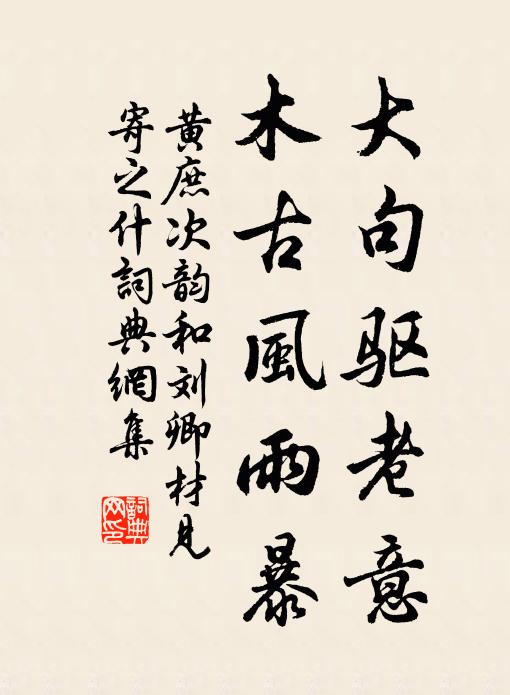 大句驱老意
木古風雨暴
黄庶次韵和刘卿材見
寄之什詞典網集
詞典
网印